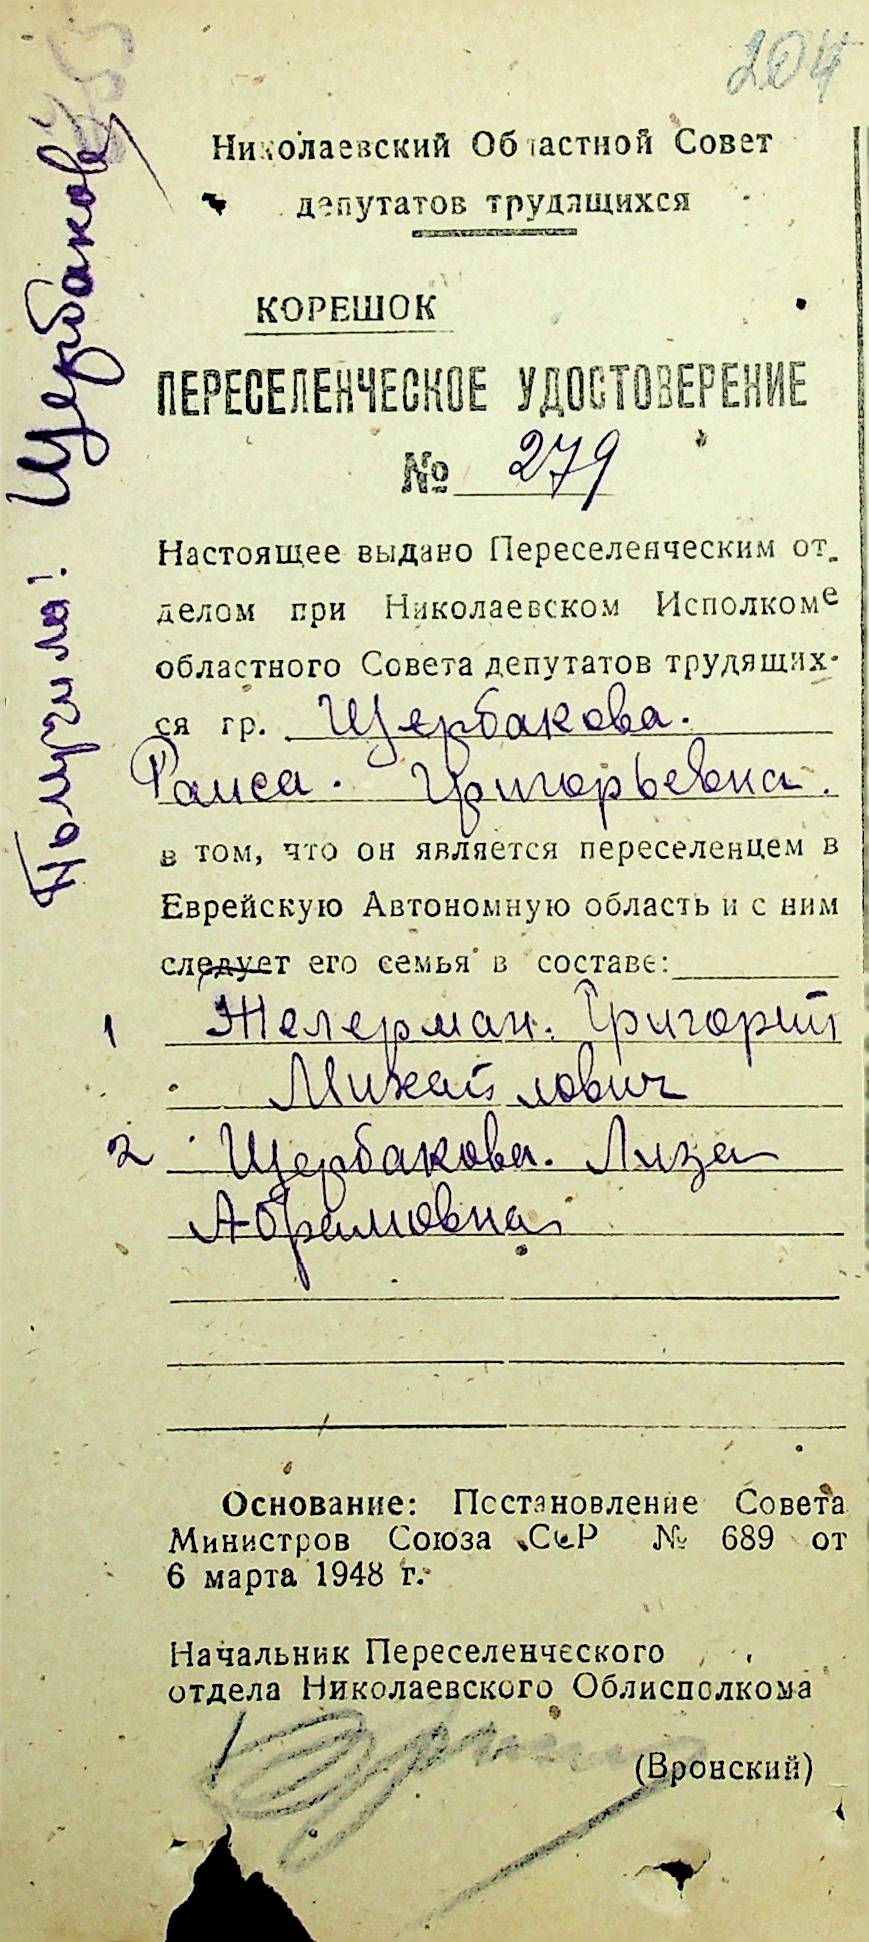 204
Николаевский Областной Совет
депутатов трудящихся
КОРЕШОК
ПЕРЕСЕЛЕНЧЕСКОЕ УДОСТОВЕРЕНИЕ
№ 279
Настоящее выдано Переселенческим от-
делом при Николаевском Исполкоме
областного Совета депутатов трудящих-
ся гр. Щербакова.
Раиса. Григорьевна.
в том, что он является переселенцем в
Еврейскую Автономную область и с ним
следует его семья в составе:
1 Желерман. Григорий
Михайлович
2 Щербакова. Лиза
Абрамовна
Основание: Постановление Совета
Министров Союза ССР № 689 от
6 марта 1948 г.
Начальник Переселенческого
отдела Николаевского Облисполкома
(Вронский)
Получила! Щербакова